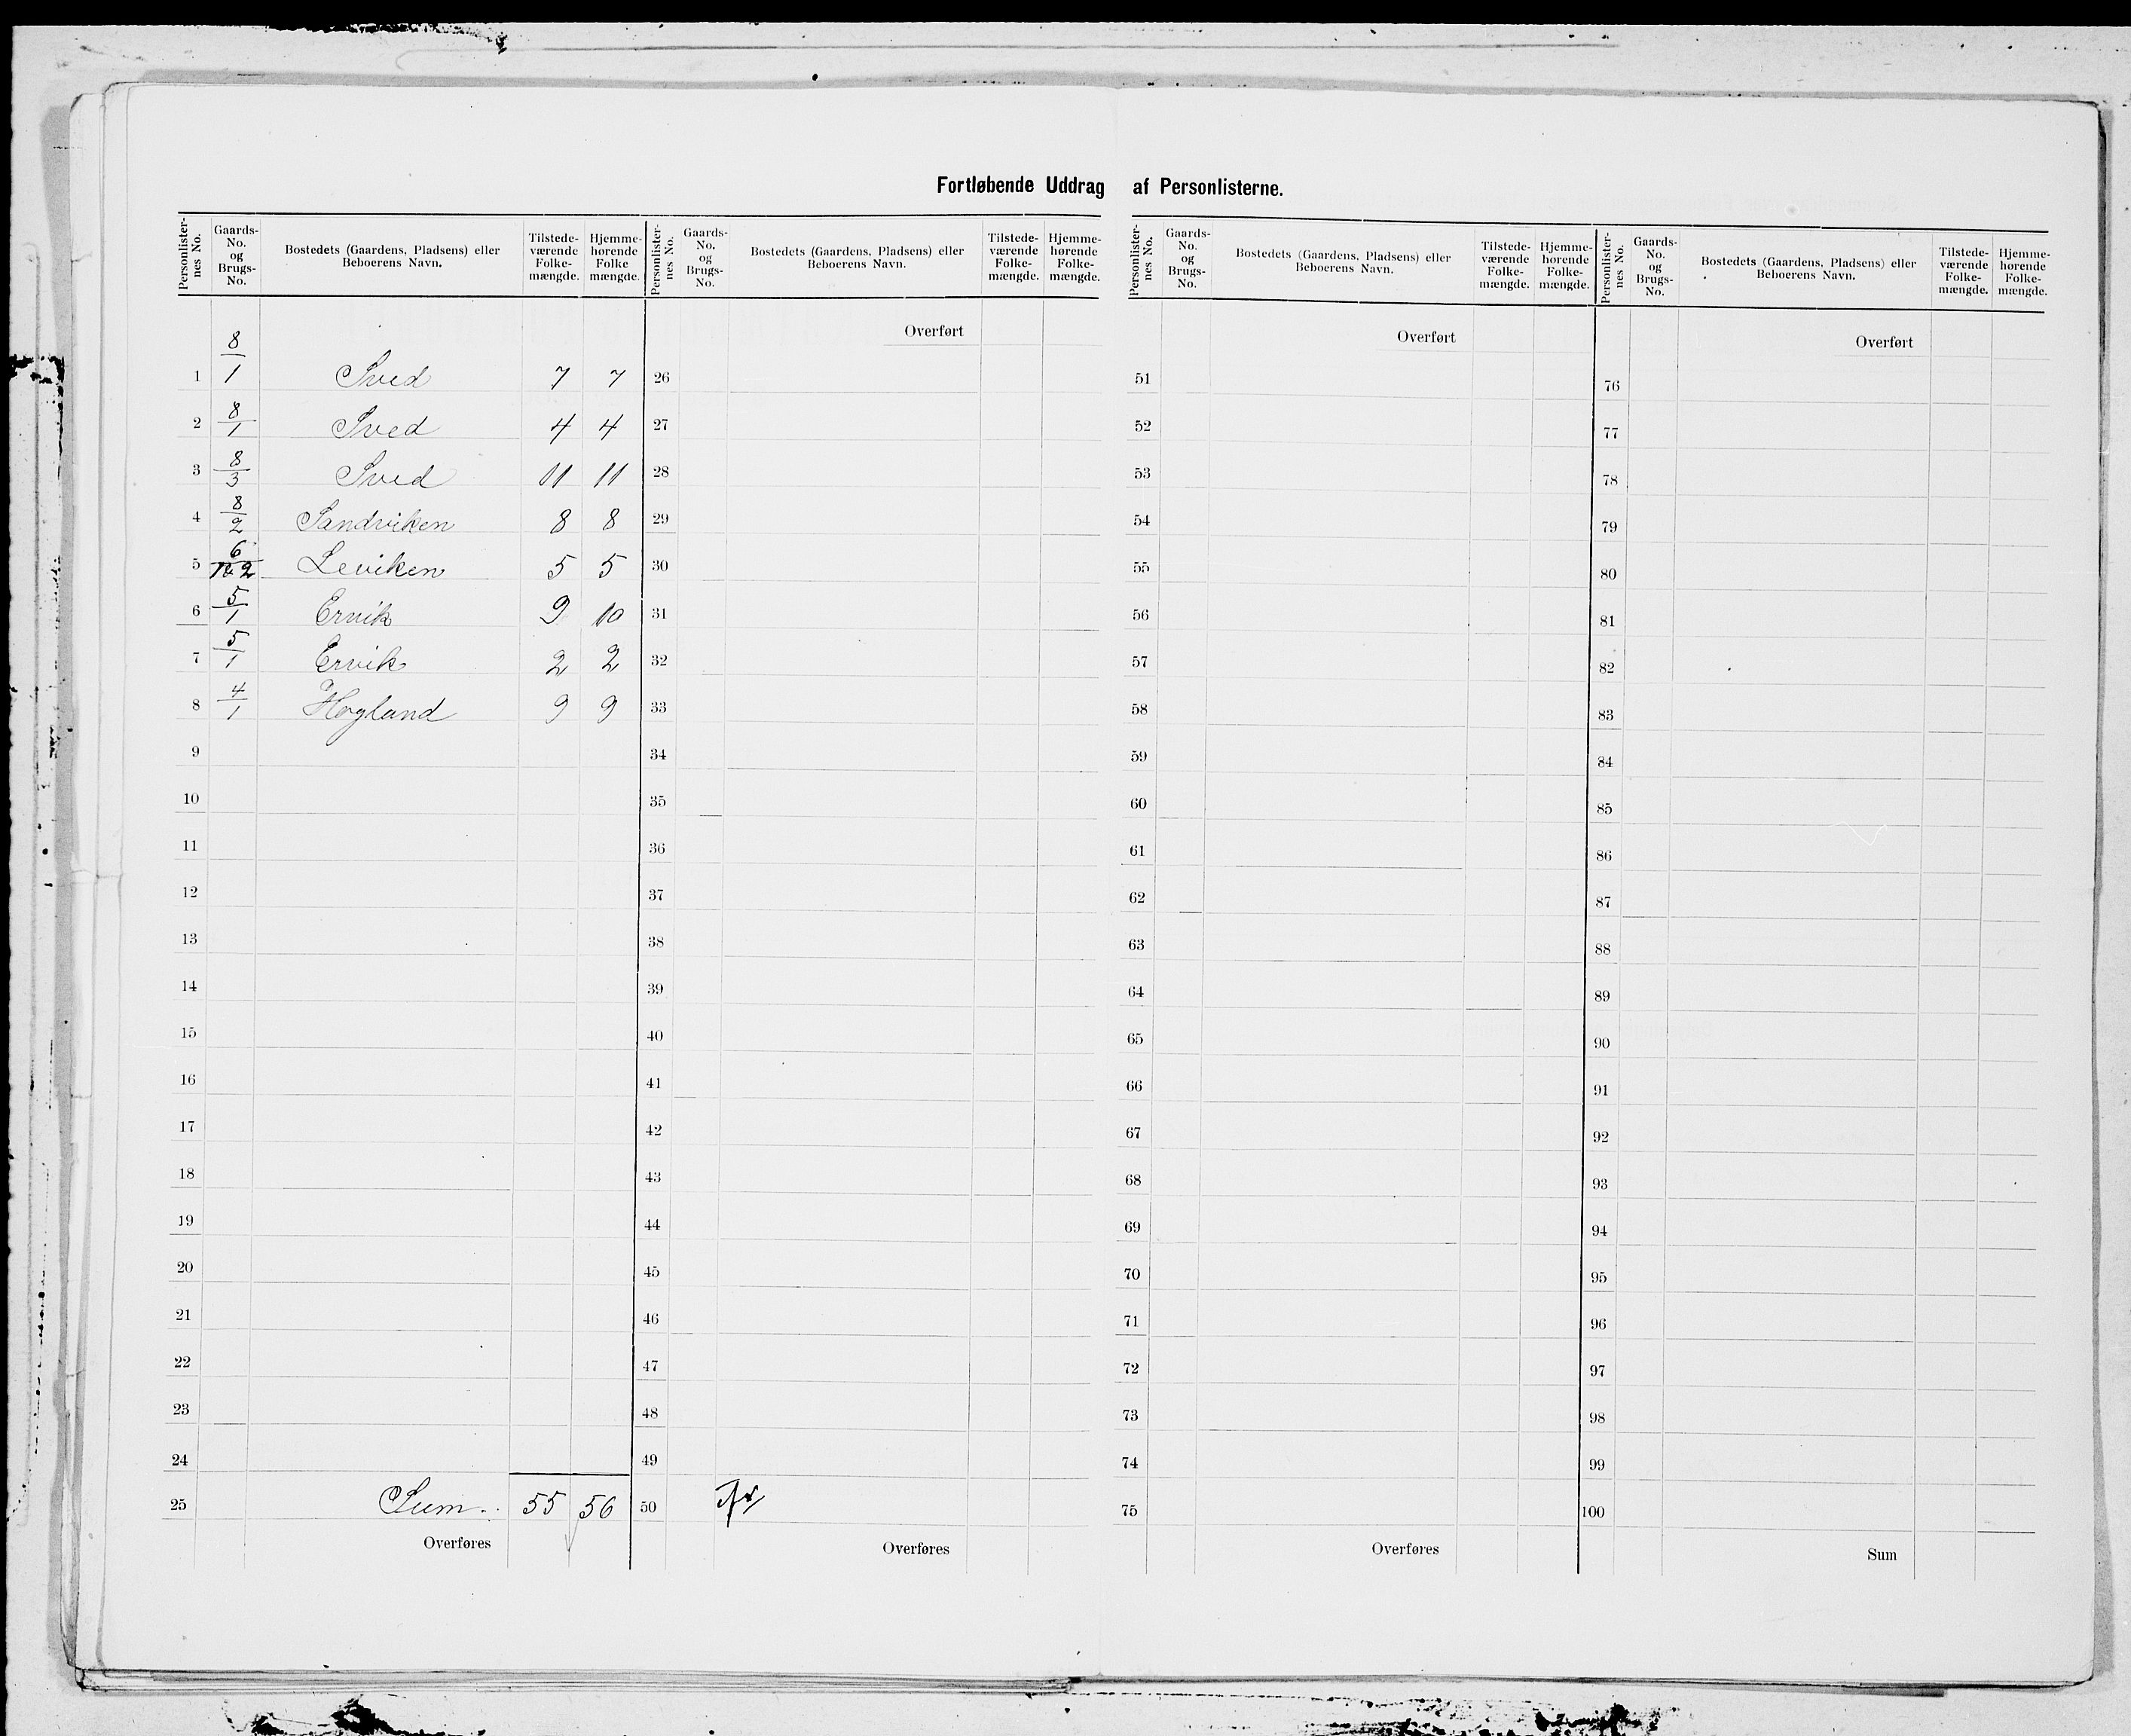 Fortløbende Uddrag af Personlisterne.
Personlister-nes No. Gaards-No. og Brugs-No. Bostedets (Gaardens, Pladsens) eller Beboerens Navn. Tilstede-værende Folke-mængde. Hjemme-hørende Folke mængde.
Personlister-nes No. Gaards-No. og Brugs-No. Bostedets (Gaardens, Pladsens) eller Beboerens Navn. Tilstede-værende Folke-mængde. Hjemme-hørende Folke-mængde.
Personlister-nes No. Gaards-No. og Brugs-No. Bostedets (Gaardens, Pladsens) eller Beboerens Navn. Tilstede-værende Folke-mængde. Hjemme-hørende Folke-mængde.
Personlister-nes No. Gaards-No. og Brugs-No. Bostedets (Gaardens, Pladsens) eller Beboerens Navn. Tilstede-værende Folke-mængde. Hjemme-hørende Folke-mængde.
1 8/1 Sved 7 7
2 8/1 Sved 4 4
3 8/3 Sved 11 11
4 8/2 Sandviken 8 8
5 6/2 Leviken 5 5
6 5/1 Ervik 9 10
7 5/1 Ervik 2 2
8 4/1 Hogland 9 9
9
10
11
12
13
14
15
16
17
18
19
20
21
22
23
24
25 Sum 55 56
Overføres
Overført
26
27
28
29
30
31
32
33
34
35
36
37
38
39
40
41
42
43
44
45
46
47
48
49
50
Overføres
Overført
51
52
53
54
55
56
57
58
59
60
61
62
63
64
65
66
67
68
69
70
71
72
73
74
75
Overføres
Overført
76
77
78
79
80
81
82
83
84
85
86
87
88
89
90
91
92
93
94
95
96
97
98
99
100
Sum